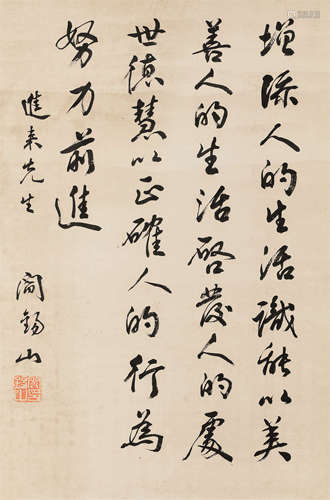 增添人的生活識能以美
善人的生活啓發人的處
世德慧以正確人的行為
努力前進
進来先生
閻錫山